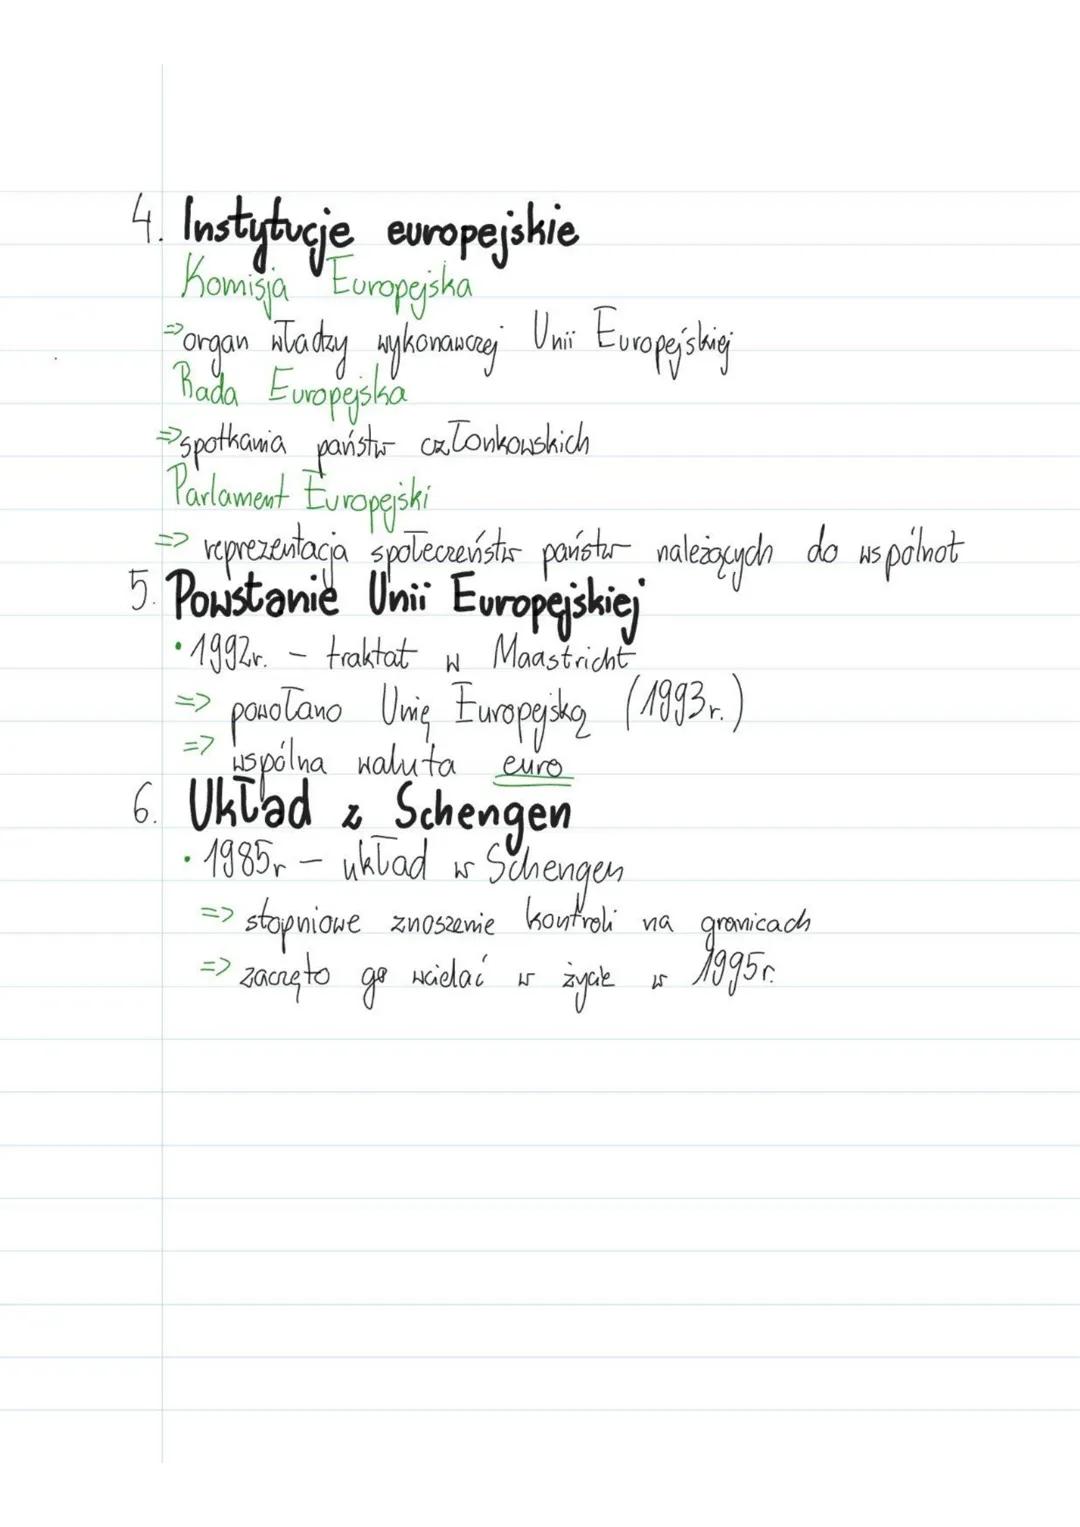 4. Instytucje europejskie
Komisja Europejska
=> organ władzy wykonawczej Unii Europejskiej
Rada Europejska
=> spotkania państw członkowskich
Parlament Europejski
=> reprezentacja społeczeństw państw należących do wspólnot
5. Powstanie Unii Europejskiej
• 1992r. – traktat w Maastricht
=> powołano Unię Europejską (1993r.)
=> wspólna waluta euro
6. Układ z Schengen
• 1985r – układ w Schengen
=> stopniowe znoszenie kontroli na granicach
=> zaczęto go wcielać w życie w 1995r.